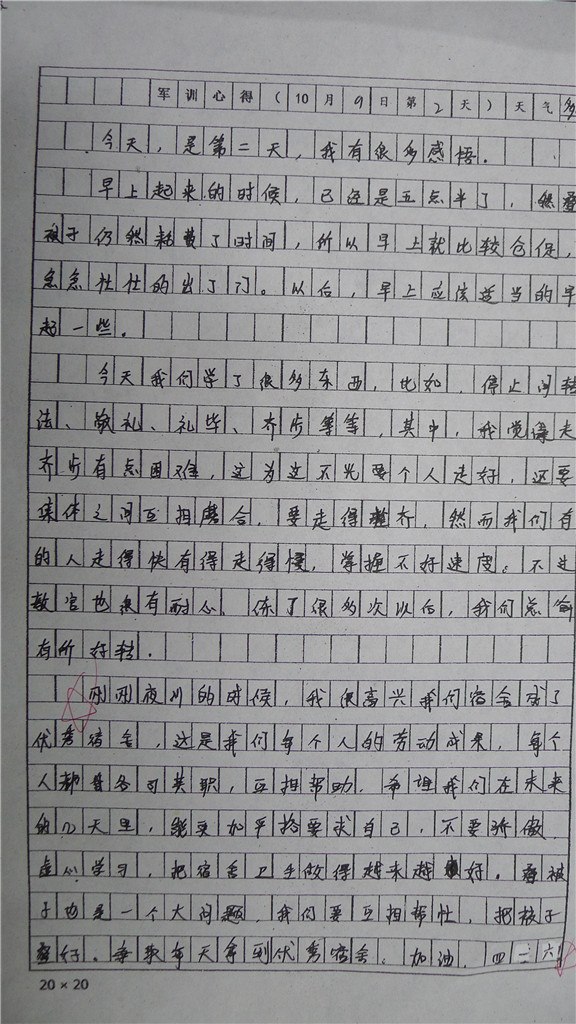 军训心得（10月9日第2天）天气多
今天，是第二天，我有很多感悟．
早上起来的时候，已经是五点半了，然叠
被子仍然耗费了时间，所以早上就比较仓促，
急急忙忙的出了门。以后，早上应该适当的早
起一些．
今天我们学了很多东西，比如，停止间转
法、敬礼、礼毕、齐步等等，其中，我觉得走
齐步有点困难，这为这不光要个人走好，还要
集体之间互相磨合，要走得整齐，然而我们有
的人走得快有得走得慢，掌握不好速度。不过
教官也很有耐心、练了很多次以后，我们总算
有所好转．
刚刚夜训的时候，我很高兴我们宿舍成了
优秀宿舍，这是我们每个人的劳动成果，每个
人都各司其职，互相帮助．希望我们在未来
的几天里，能更加严格要求自己，不要骄傲，
虚心学习，把宿舍卫生做得越来越好。叠被
子也是一个大问题，我们要互相帮忙，把被子
叠好。争取每天拿到优秀宿舍．加油，四二六！
20×20